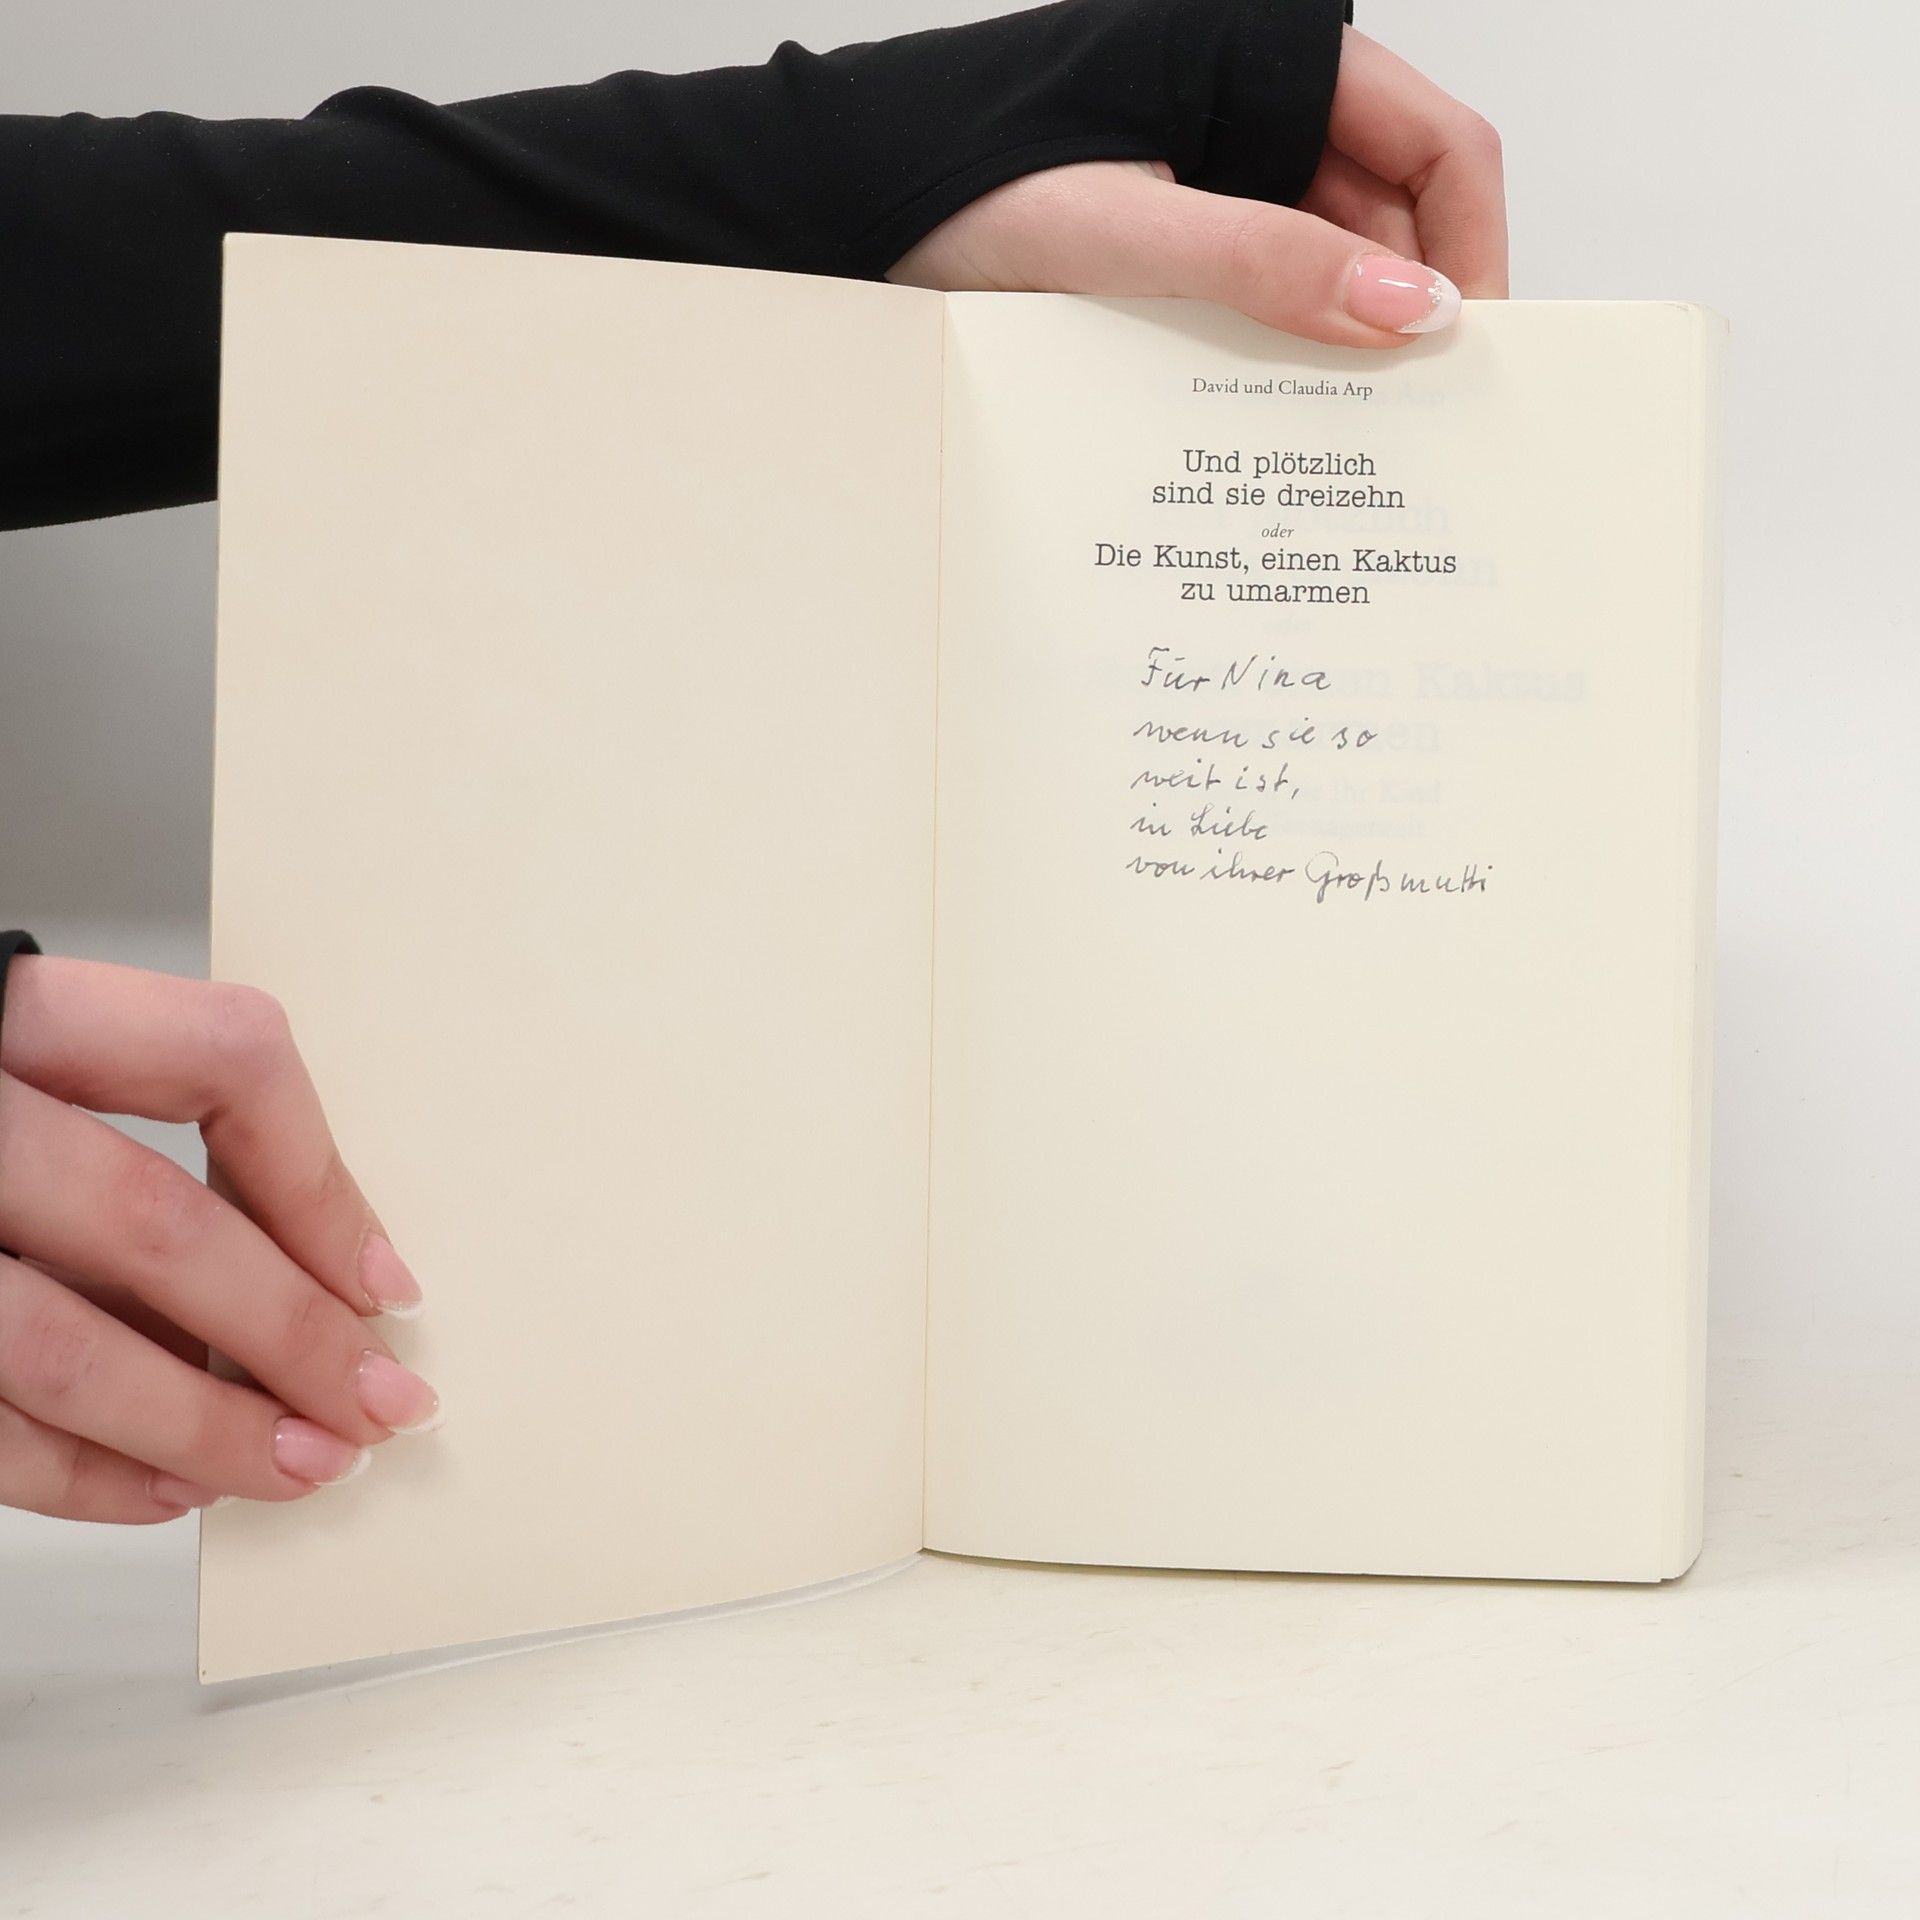 David und Claudia Arp
Und plötzlich
sind sie dreizehn
oder
Die Kunst, einen Kaktus
zu umarmen
Für Nina
wenn sie so
weit ist,
in Liebe
von ihrer Großmutti